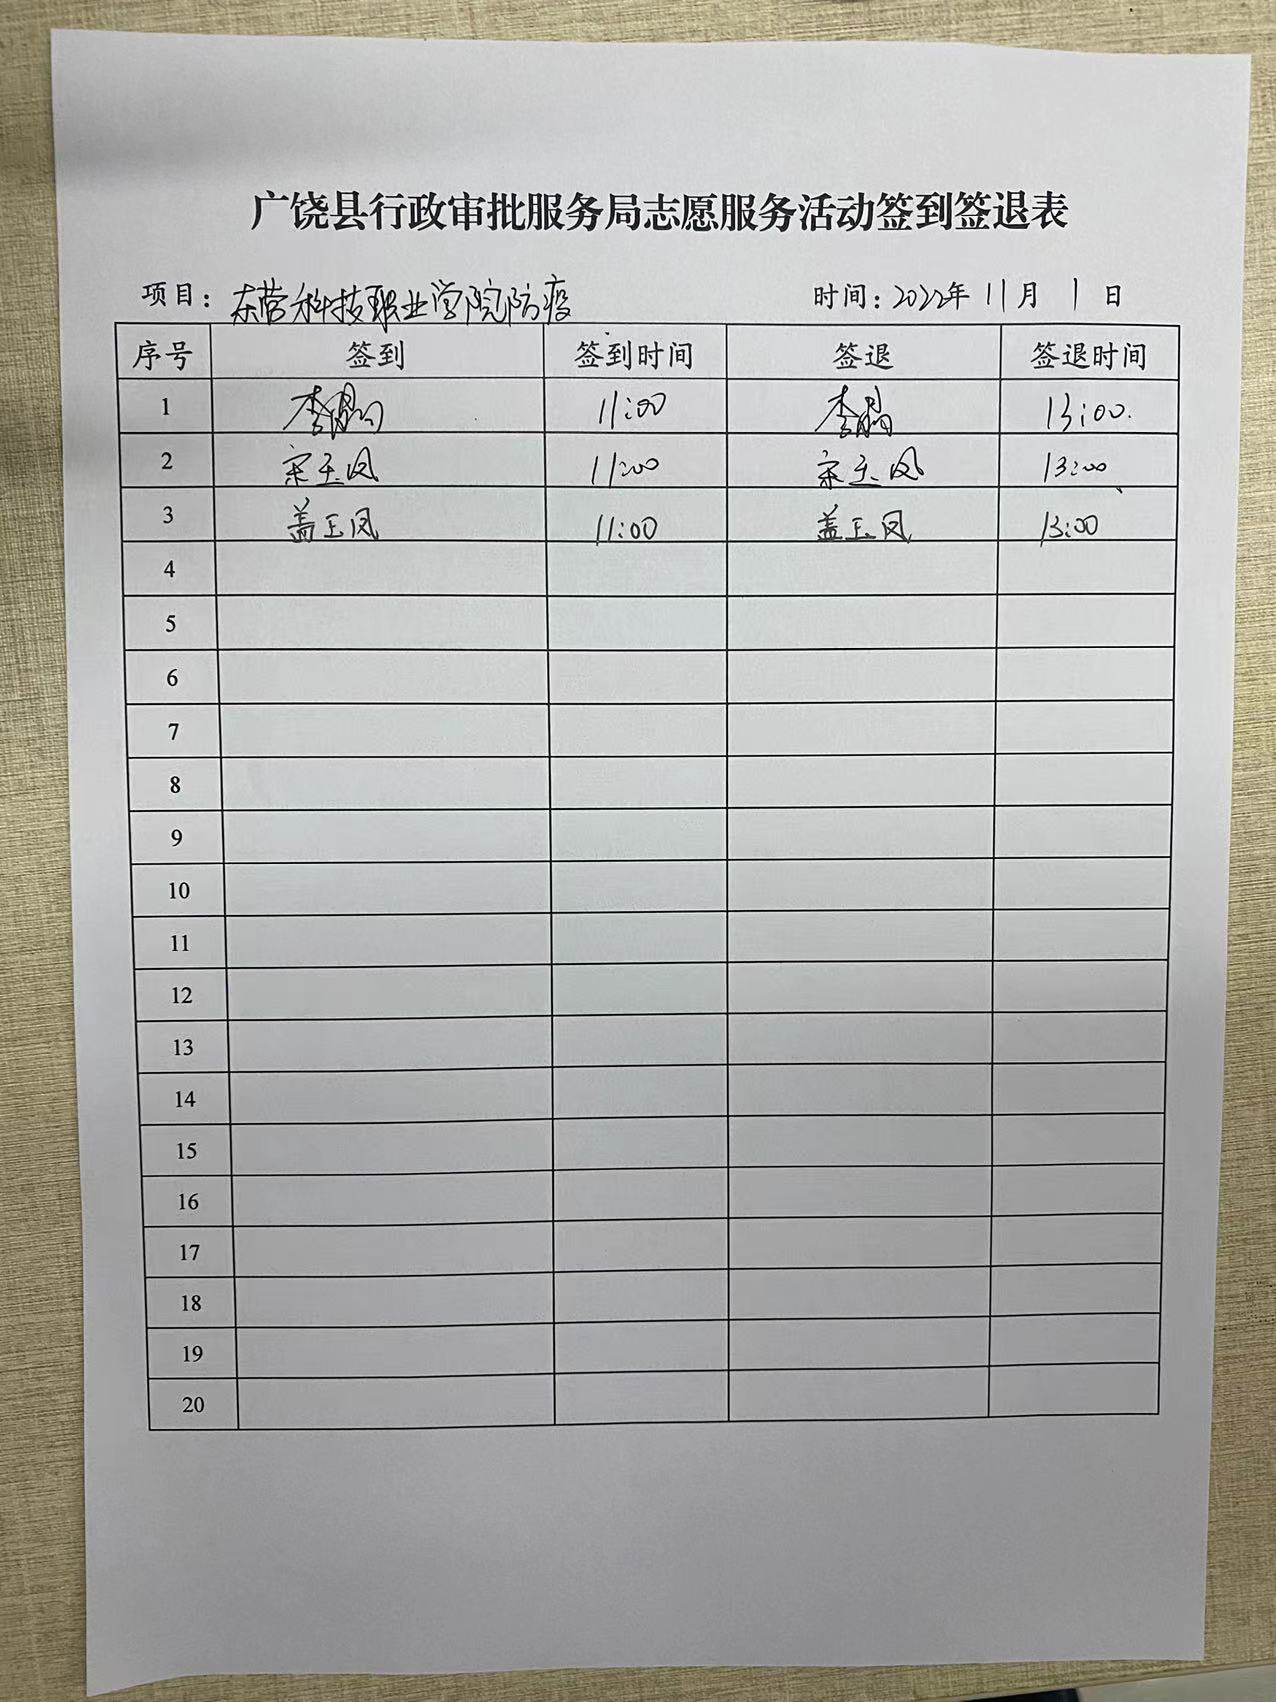 广饶县行政审批服务局志愿服务活动签到签退表
项目：东营科技职业学院防疫 时间：2022年 11月 1日
序号 签到 签到时间 签退 签退时间
1 李 11:00 李 13:00.
2 宋玉凤 11:00 宋玉凤 13:00
3 盖玉凤 11:00 盖玉凤 13:00
4
5
6
7
8
9
10
11
12
13
14
15
16
17
18
19
20